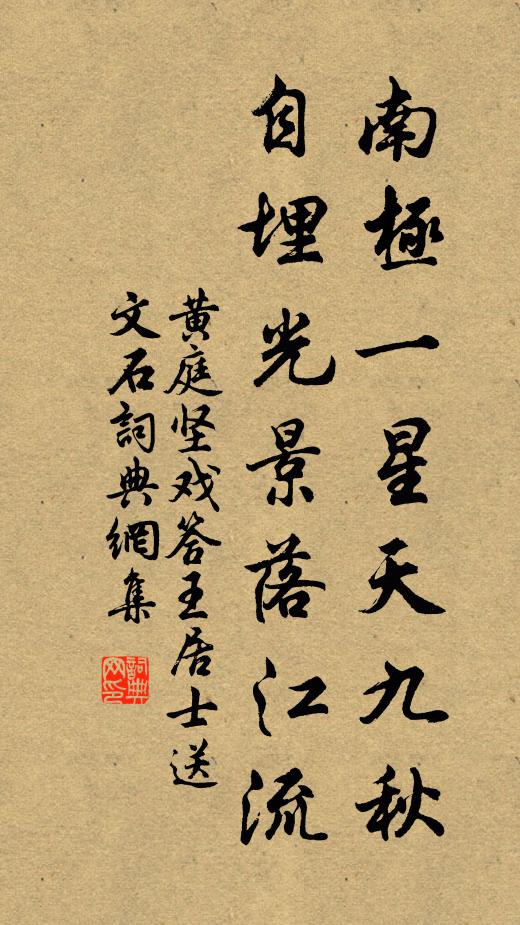 南極一星天九秋
自埋光景落江流
黄庭坚戏答王居士送
文石詞典網集
詞典
网印